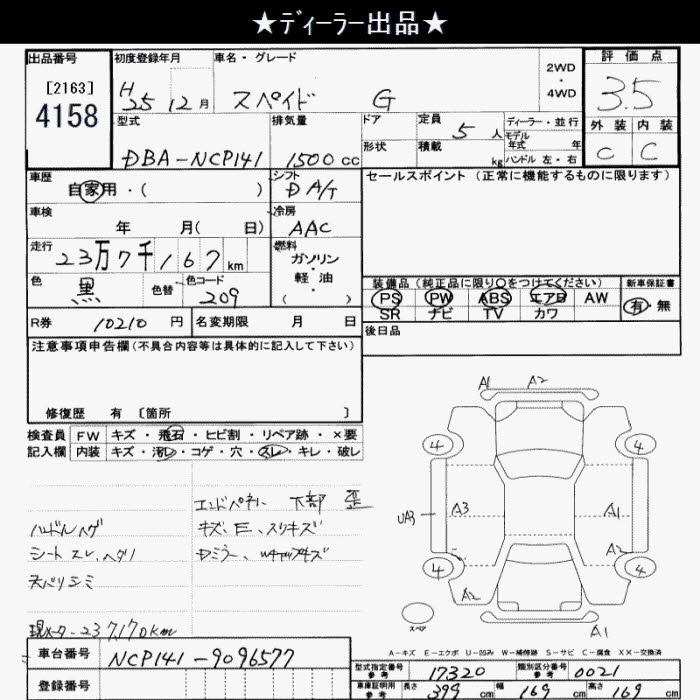 ★ディーラー出品★
出品番号
[2163]
4158
初度登録年月
H25 12月
車名・グレード
スペイド G
2WD
・
4WD
評価点
3.5
外装 内装
C C
型式
DBA-NCP141
排気量
1500cc
ドア
形状
定員
5人
積載
kg
ディーラー・並行
モデル年式 年
ハンドル 左・右
車歴
自家用・( )
シフト
D A/T
セールスポイント (正常に機能するものに限ります)
車検
年 月( 日)
冷房
AAC
走行
23万7千167km
燃料
ガソリン・軽油・( )
色
黒
色替
色コード
209
装備品(純正品に限り○をつけてください)
PS PW ABS エアB AW
SR ナビ TV カワ
新車保証書
有・無
R券 10210円
名変期限 月 日
後日品
注意事項申告欄(不具合内容等は具体的に記入して下さい)
修復歴 有 [箇所 ]
検査員記入欄
FW キズ・飛石・ヒビ割・リペア跡・×要
内装 キズ・汚レ・コゲ・穴・スレ・キレ・破レ
エンドパネル 下部 歪
キズ、E、スリキズ
ハンドルハゲ
シート スレ、ヘタリ
天バリシミ
現メーター237,170km
A1 A2
4 4
UA3 A3 A1
A2
4 4
A2
A1
スペア
A-キズ E-エクボ U-凹み W-補修跡 S-サビ C-腐食 XX-交換済
車台番号 NCP141-9096577
登録番号
型式指定番号参考 17320
類別区分番号参考 0021
車庫証明用参考 長さ 399cm 幅 169cm 高さ 169cm